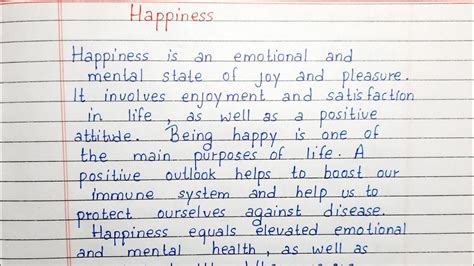 Happiness
Happiness is an emotional and
mental state of joy and pleasure.
It involves enjoyment and satisfaction
in life, as well as a positive
attitude. Being happy is one of
the main purposes of life. A
positive outlook helps to boost our
immune system and help us to
protect ourselves against disease.
Happiness equals elevated emotional
and mental health, as well as